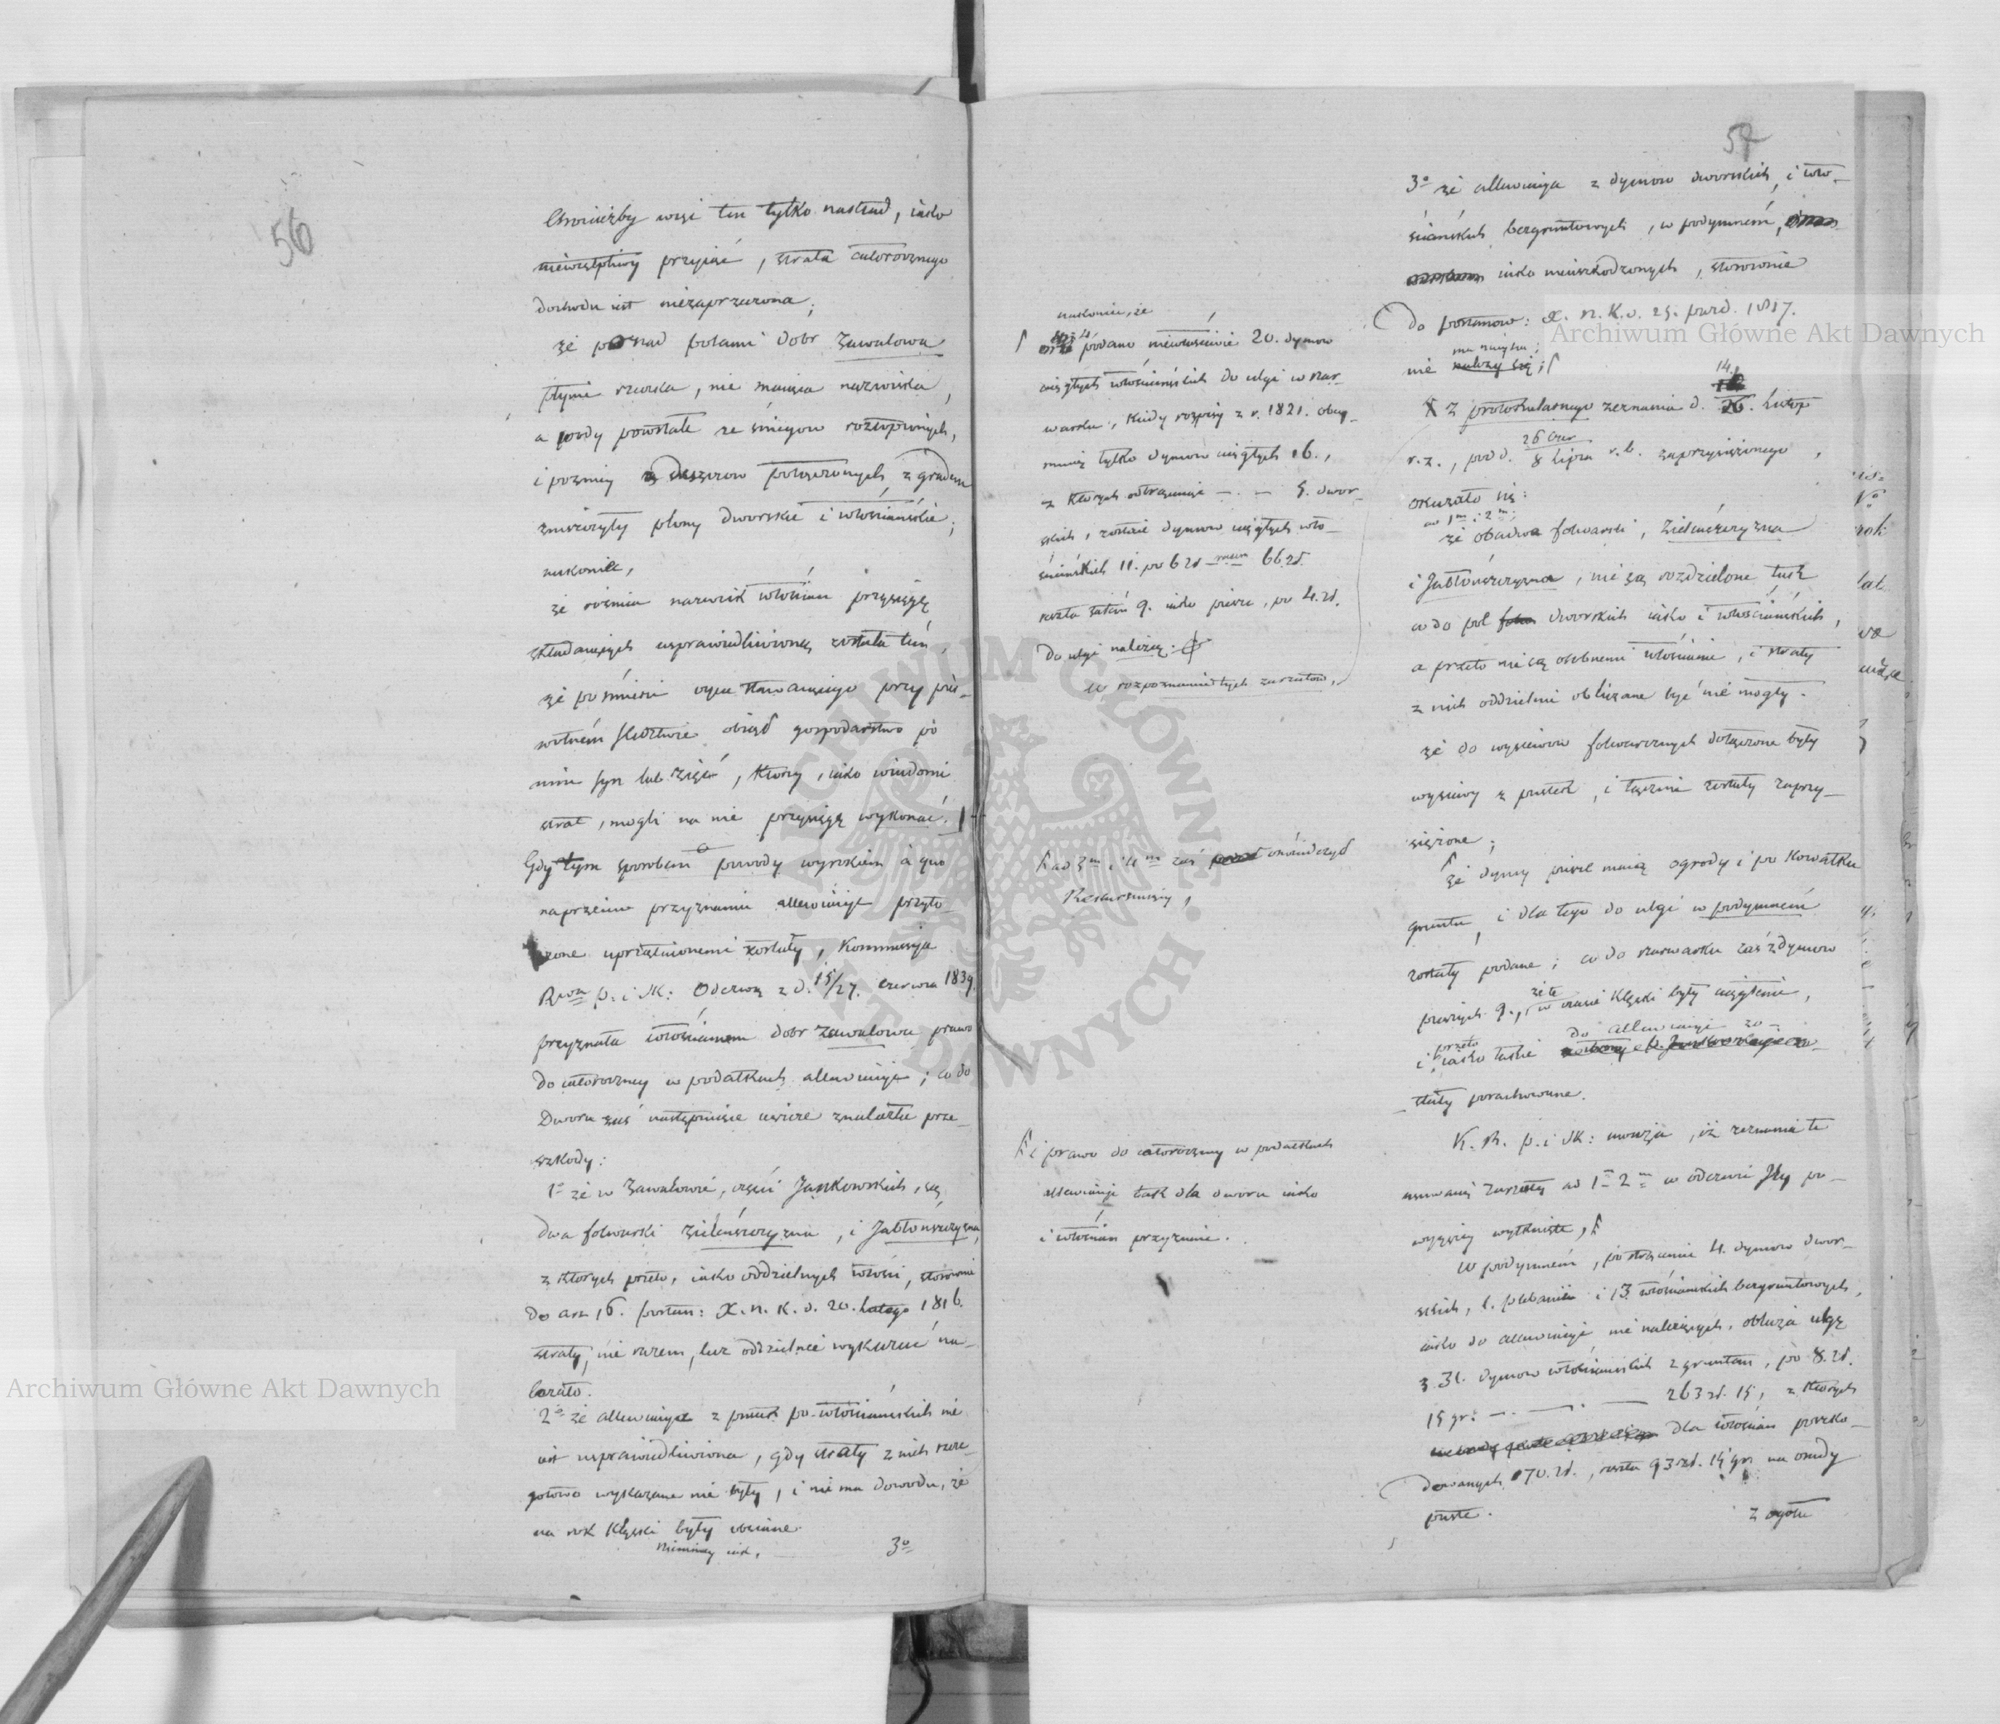 56
Chociażby więc ten tylko nastąd, jako
niewątpliwy przyjąć, strata całorocznego
dochodu jest niezaprzeczona;
że ponad polami dobr Zawałowa
płynie rzeczka, nie mająca nazwiska,
a wody powstałe ze śniegow roztopionych,
i pozniey z deszczow połączonych z gradem
zniszczyły plony dworskie i włościańskie;
nakoniec,
że różnica nazwisk włościan przysięgę
składaiących usprawiedliwioną została tem,
że po śmierci oyca stawaiącego przy pier-
wotnem śledztwie objął gospodarstwo po
nim syn lub zięć, ktorzy, iako wiadomi
strat, mogli na nie przysięgę wykonać.
Gdy tym sposobem powody wyrokiem a quo
naprzeciw przyznaniu allewiacyi przyto-
czone uprzątnionemi zostały, Kommissya
Rwa P. i Sk: Odezwą z d. 15/27. czerwca 1839
przyznała włościanom dobr Zawałowa prawo
do całoroczney w podatkach allewiacyi; co do
Dworu zaś następuiące ieszcze znalazła prze-
szkody:
1o że w Zawałowie, części Jankowskich, są
dwa folwarki Zieleńszczyzna, i Jabłonszczyzna,
z ktorych przeto, iako oddzielnych włości, stosownie
do art 16. postan: X. N. K. d. 20. Lutego 1816.
straty, nie razem, lecz oddzielnie wykazać na-
leżało.
2o że allewiacya z pustek po-włościańskich nie
iest usprawiedliwiona, gdy straty z nich szcze-
gołowo wykazane nie były, i nie ma dowodu, że
na rok klęski były obsiane.
3o
nakoniec, że
podano niewłaściwie 20. dymow
ciągłych włościańskich do ulgi w szar-
warku, kiedy rozpisy z r. 1821. obey-
muią tylko dymow ciągłych 16.,
z ktorych odtrąciwszy — . — 5. dwor-
skich, zostaie dymow ciągłych wło-
ściańskich 11. po 6 zł 66 zł.
reszta zatem 9. iako piesze, po 4. zł.
do ulgi należą.
W rozpoznaniu tych zarzutow,
ad 3m i 4m zaś oświadczył
Rekursuiący,
i prawo do całoroczney w podatkach
allewiacyi tak dla dworu iako
i włościan przyznaie.
57
3o że allewiacya z dymow dworskich, i wło-
ściańskich bezgruntowych, w podymnem,
iako nieuszkodzonych, stosownie
do postanow: X. N. K. d. 25. pazd. 1817.
ma mieysca;
nie należy się;
14
z protokularnego zeznania d. 26. Lutego
26 Czer
r. z., pod d. 8 Lipca r. b. zaprzysiężonego,
okazało się:
ad 1m i 2m;
że obadwa folwarki, Zieleńszczyzna
i Jabłonszczyzna, nie są rozdzielone tak
co do pol dworskich iako i włościańskich,
a przeto nie są osobnemi włościami, i straty
z nich oddzielnie obliczane być nie mogły.
że do wysiewow folwarcznych dołączone były
wysiewy z pustek, i łącznie zostały zaprzy-
siężone;
że dymy piesze maią ogrody i po kawałku
gruntu, i dla tego do ulgi w podymnem
zostały podane; co do szarwarku zaś z dymow
pieszych 9., że te w czasie klęski były ciągłemi,
do allewiacyi zo-
i przeto iako takie
stały porachowane.
K. R. P. i Sk: uważa, iż zeznania te
usuwaią zarzuty ad 1m 2m w odezwie Jey po-
wyższey wytknięte,
w podymnem, po strąceniu 4. dymow dwor-
skich, 1. plebanii i 13 włościańskich bezgruntowych,
iako do allewiacyi nie należących, oblicza ulgę
z 31. dymow włościańskich z gruntami, po 8. zł.
15 gr: —.—.— 263 zł. 15, z ktorych
dla włościan poszko-
dowanych 170. zł., reszta 93 zł. 15 gr. na osady
puste.
z ogołu
Archiwum Główne Akt Dawnych
Archiwum Główne Akt Dawnych
ARCHIWUM GŁÓWNE AKT DAWNYCH